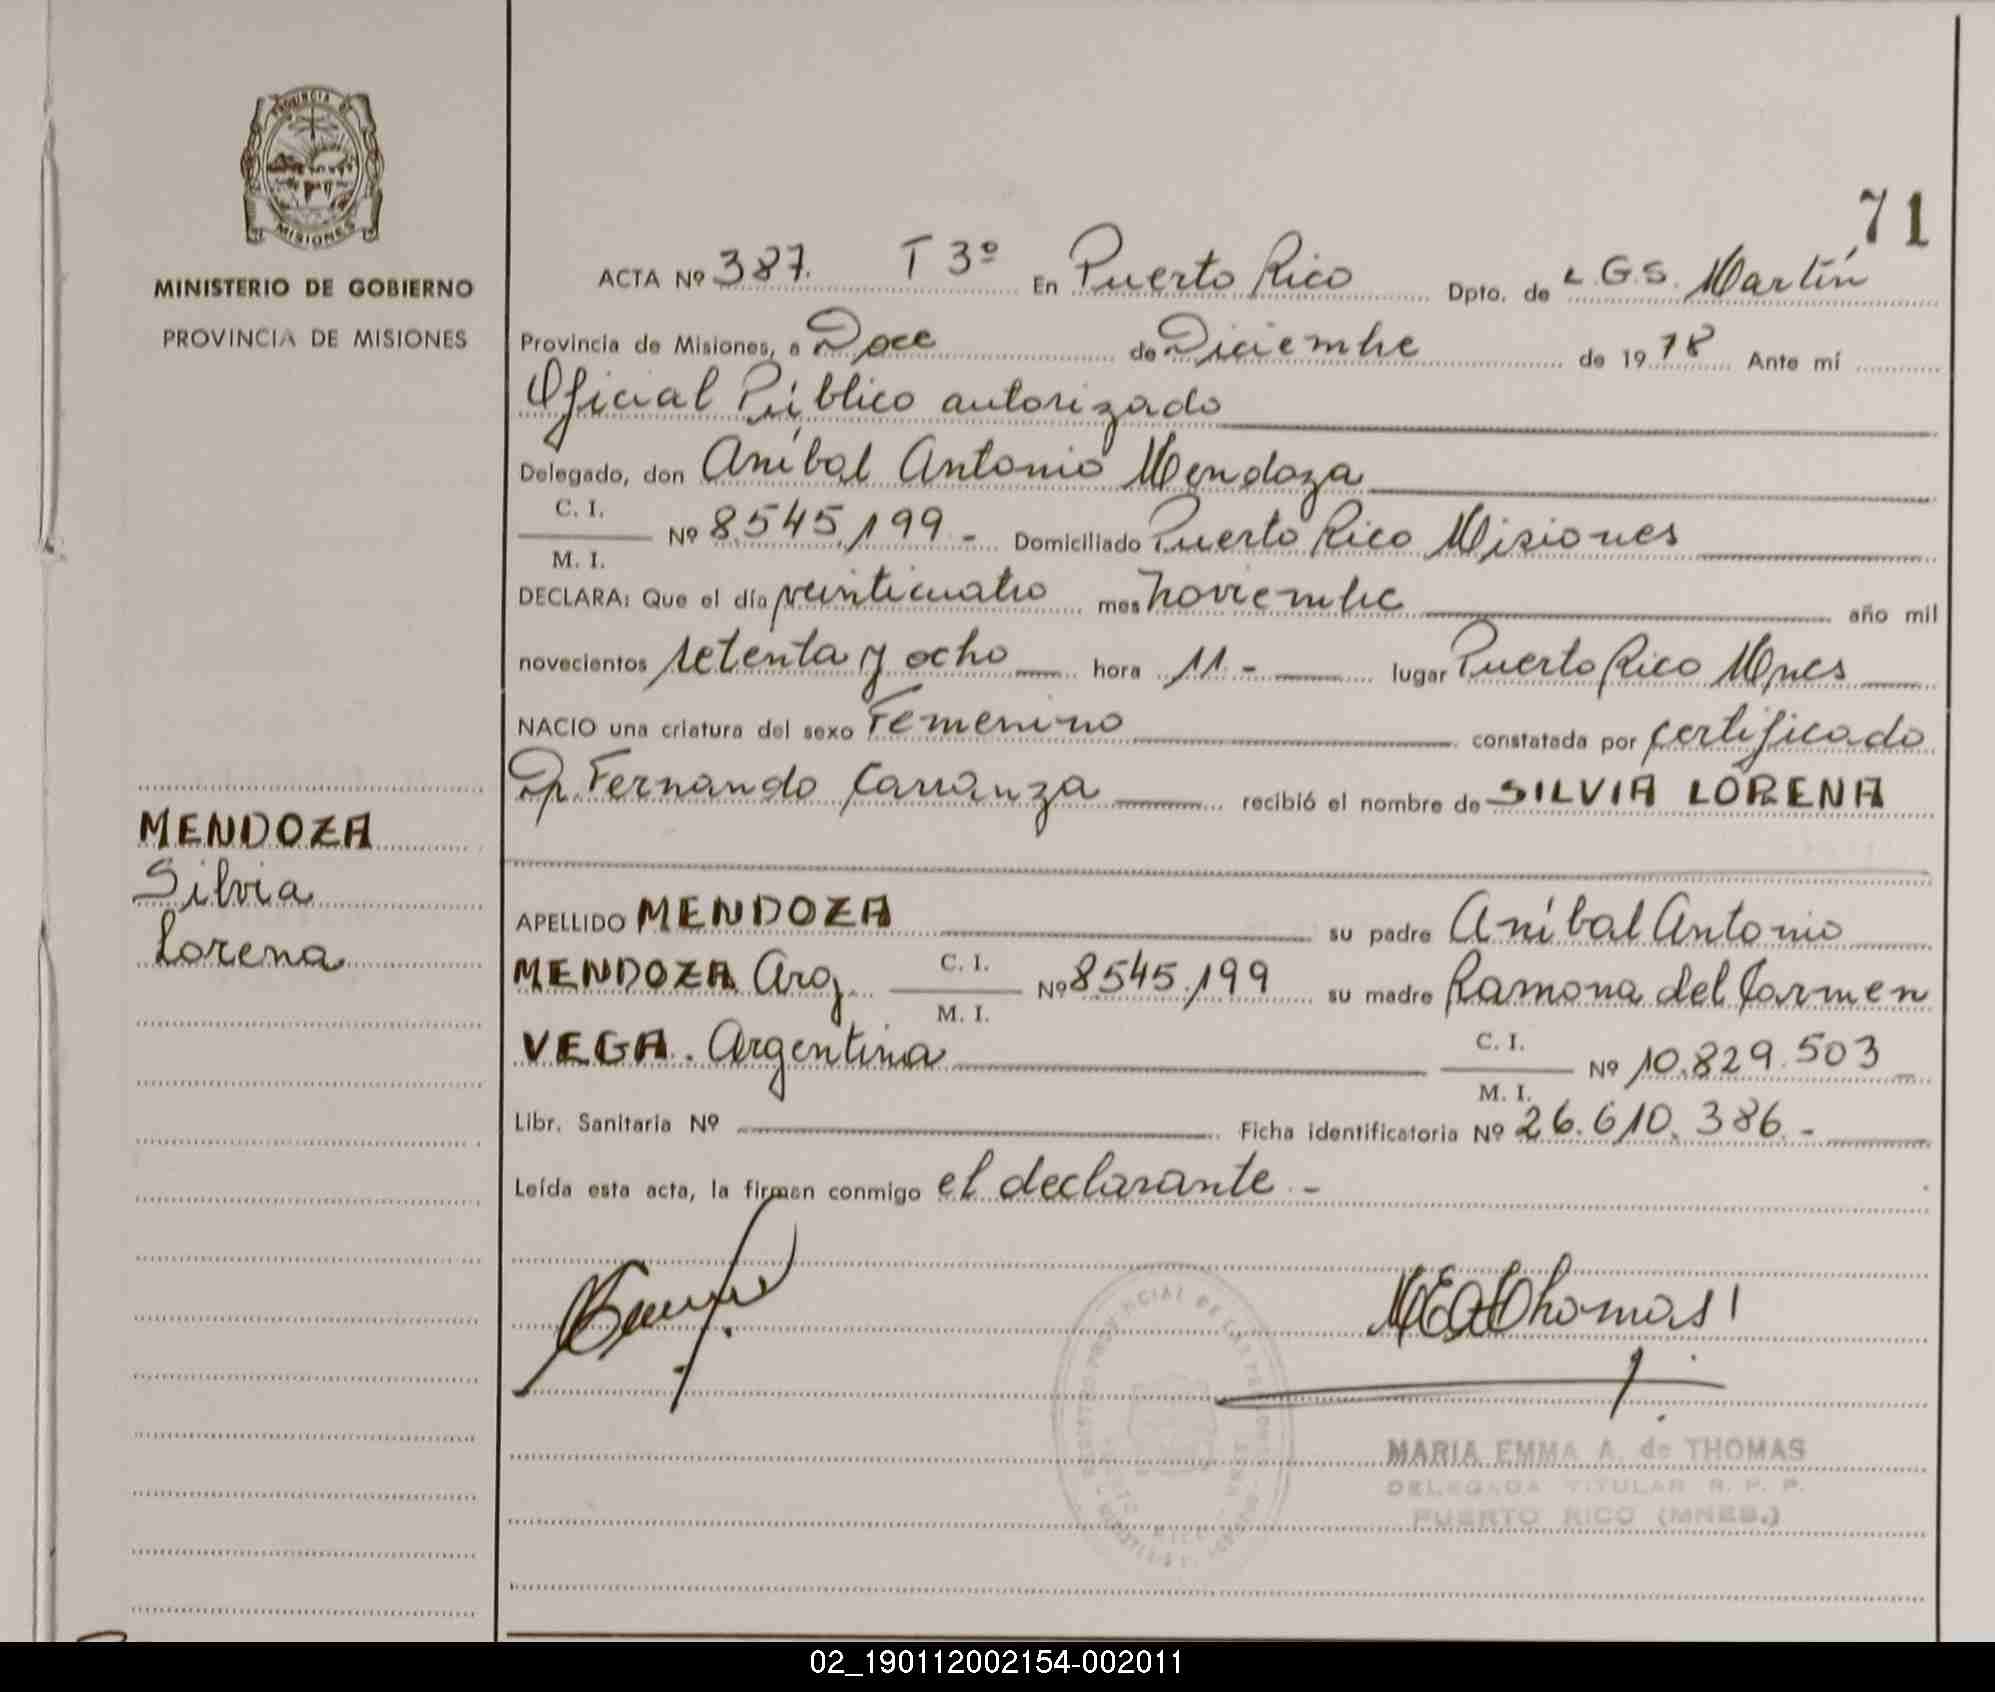 PROVINCIA DE
MISIONES
MINISTERIO DE GOBIERNO
PROVINCIA DE MISIONES
MENDOZA
Silvia
Lorena
71
ACTA Nº 387. T 3º En Puerto Rico Dpto. de L.G.S. Martín
Provincia de Misiones, a Doce de Diciembre de 1978 Ante mí
Oficial Público autorizado
Delegado, don Aníbal Antonio Mendoza
C. I.
M. I.
Nº 8.545.199 - Domiciliado Puerto Rico Misiones
DECLARA: Que el día veinticuatro mes noviembre año mil
novecientos setenta y ocho hora 11.- lugar Puerto Rico Mnes
NACIO una criatura del sexo Femenino constatada por certificado
Dr. Fernando Carranza recibió el nombre de SILVIA LORENA
APELLIDO MENDOZA su padre Aníbal Antonio
MENDOZA Arg. C. I. M. I. Nº 8545.199 su madre Ramona del Carmen
VEGA. Argentina C. I. M. I. Nº 10.829.503
Libr. Sanitaria Nº Ficha identificatoria Nº 26.610.386.-
Leída esta acta, la firman conmigo el declarante -
MEAdeThomas
MARIA EMMA A. de THOMAS
DELEGADA TITULAR R. P. P.
PUERTO RICO (MNES.)
02_190112002154-002011